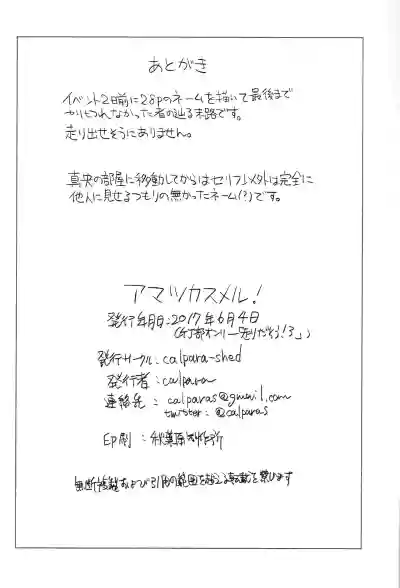 あとがき
イベント2日前に28pのネームを描いて最後まで
やりきれなかった者の辿る末路です。
走り出せそうにありません。
真央の部屋に移動してからはセリフ以外は完全に
他人に見せるつもりの無かったネーム(?)です。
アマツカスメル!
発行年月日:2017年6月4日
発行サークル:calpara-shed
発行者:calpara
連絡先:calparas@gmail.com
twitter:@calparas
印刷:秋葉原制作所
無断複製および引用の範囲を超える転載を禁じます